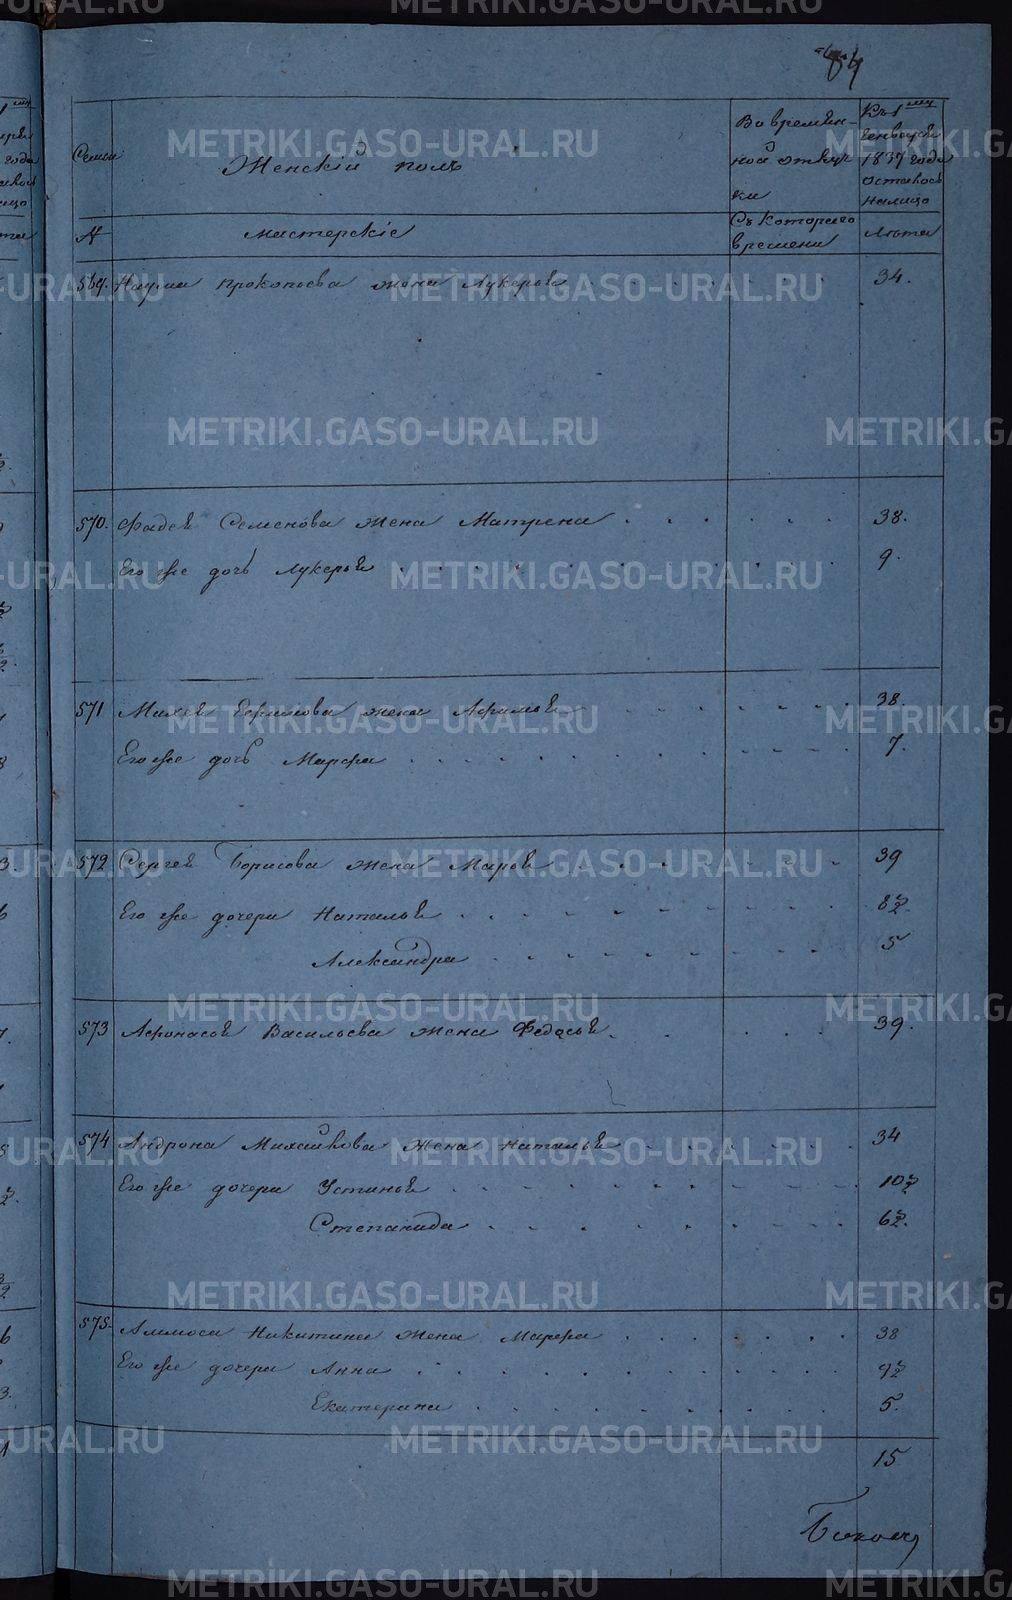 84
Семьи
Женскій полъ
Во времян-
ной отлуч
ки
Къ 1му
Генворя
1837 года
осталось
налицо
№
Мастерскіе
Съ котораго
времени
Лѣта
569. Наума Прокопьева жена Лукерья 34.
570. Фадея Семенова жена Матрена 38.
Его же дочь Лукерья 9.
571 Михея Ефимова жена Афимья 38.
Его же дочь Марфа 7.
572 Сергея Борисова жена Марья 39
Его же дочери Наталья 8½
Александра 5
573 Афонасья Васильева жена Федосья 39.
574 Андрона Михайлова жена Наталья 34
Его же дочери Устинья 10½
Степанида 6½.
575. Никитина жена Марфа 38
Его же дочери Анна 9½
Екатерина 5.
15
METRIKI.GASO-URAL.RU